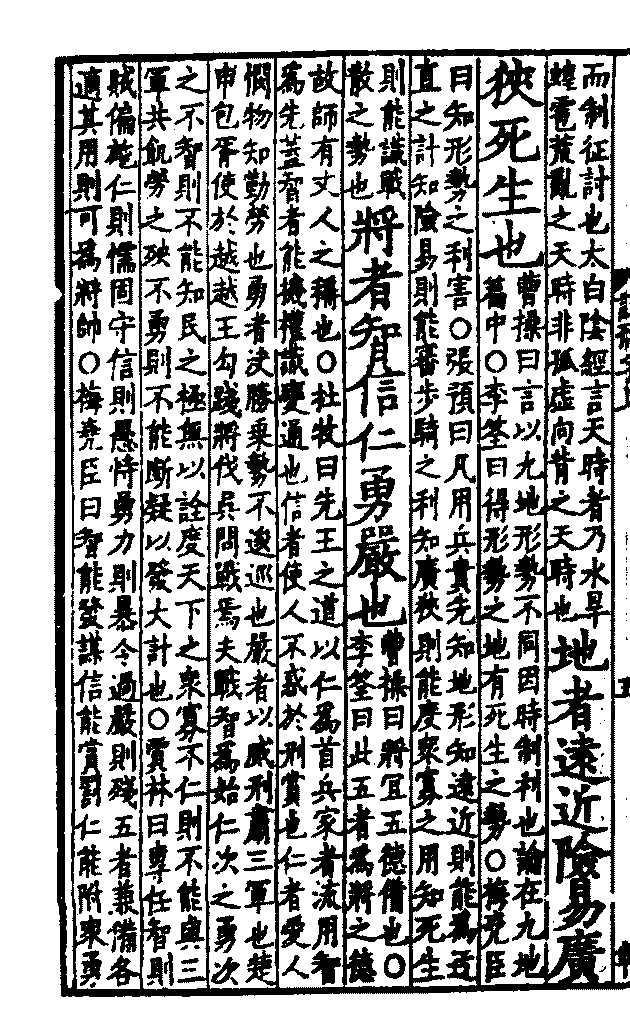 而制征討也太白陰經言天時者乃水旱
蝗雹荒亂之天時非孤虛向背之天時也
地者遠近險易廣
狹死生也
曹操曰言以九地形勢不同因時制利也論在九地
篇中○李筌曰得形勢之地有死生之勢○梅堯臣
曰知形勢之利害○張預曰凡用兵貴先知地形知遠近則能爲迂
直之計知險易則能審步騎之利知廣狹則能度衆寡之用知死生
則能識戰
散之勢也
將者智信仁勇嚴也
曹操曰將宜五德備也○
李筌曰此五者爲將之德
故師有丈人之稱也○杜牧曰先王之道以仁爲首兵家者流用智
爲先蓋智者能機權識變通也信者使人不惑於刑賞也仁者愛人
憫物知勤勞也勇者決勝乘勢不逡巡也嚴者以威刑肅三軍也楚
申包胥使於越越王勾踐將伐吳問戰焉夫戰智爲始仁次之勇次
之不智則不能知民之極無以詮度天下之衆寡不仁則不能與三
軍共飢勞之殃不勇則不能斷疑以發大計也○賈林曰專任智則
賊偏施仁則懦固守信則愚恃勇力則暴令過嚴則殘五者兼備各
適其用則可爲將帥○梅堯臣曰智能發謀信能賞罰仁能附衆勇